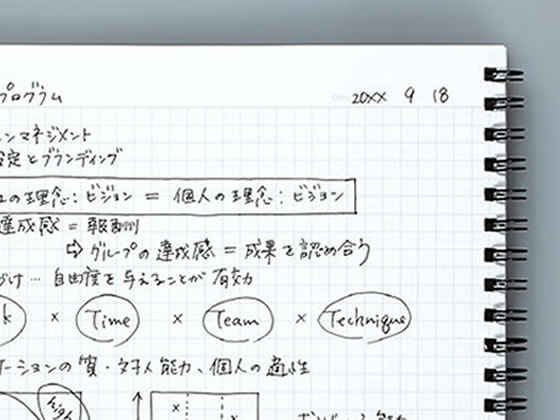 プログラム 20XX 9 18
ンマネジメント
設定とブランディング
の理念：ビジョン ＝ 個人の理念：ビジョン
達成感 ＝ 報酬
⇨ グループの達成感 ＝ 成果を認め合う
づけ … 自由度を与えることが有効
k × Time × Team × Technique
ーションの質・対人能力、個人の適性
high
×